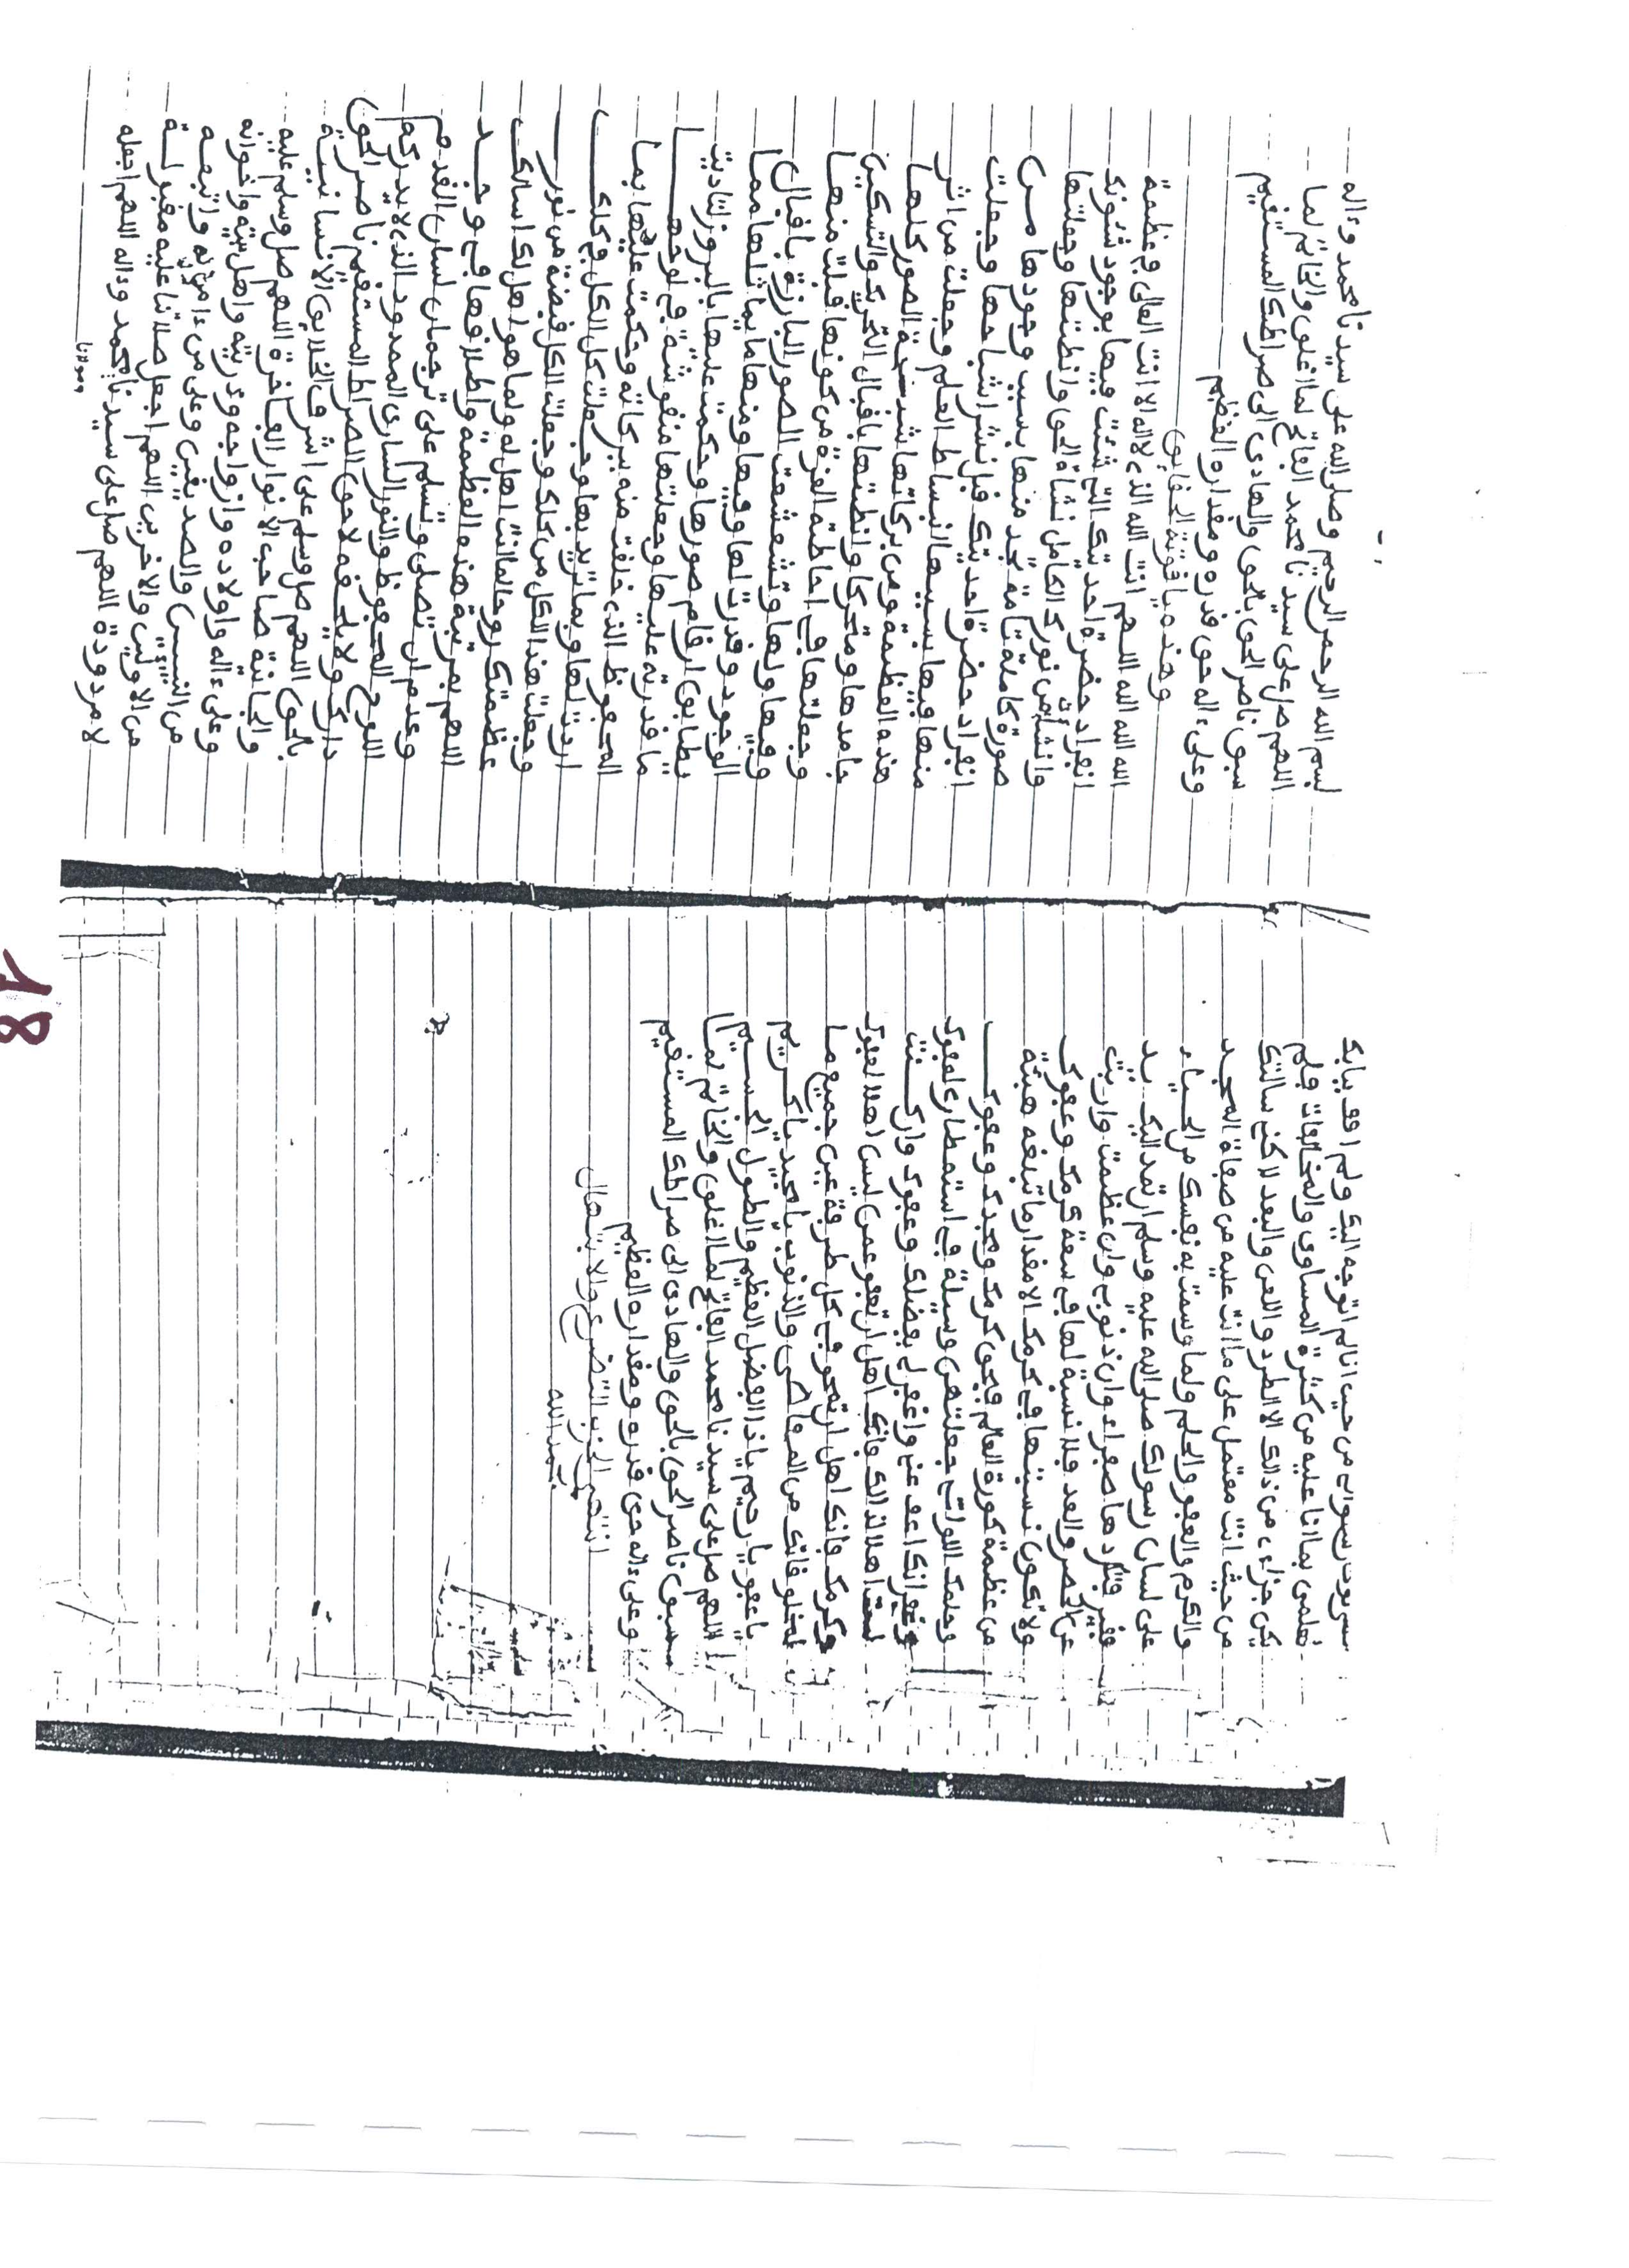 من حيث انا لم اتوجه اليك ولم اقف ببابك
لعلمي بما انا عليه من كثرة المساوي والمخالفات فلم
يكن جزاءي من ذلك الا الطرد واللعن والبعد لاكني سالتك
من حيث انت معتمدا على ما انت عليه من صفاة المجد
والكرم والعفو والحلم ولما وسمت به نفسك من الحياء
على لسان رسولك صلى الله عليه وسلم ان تمد اليك يد
فقير فتردها صفراء وان ذنوبي وان عظمت واربت
عن الحصر والعد فلا نسبة لها في سعة كرمك وعفوك
ولا تكون نسبتها في كرمك الا مقدار ما تبلغه هبئة
من عظمة كورة العالم فبحق كرمك ومجدك وعفوك
وحلمك اللواتي جعلتهن وسيلة في استمطاري لعفوك
وغفرانك اعف عني واغفر لي بفضلك وعفوك وان كنت
لست اهلا لذالك فانك اهل ان تعفو عمن ليس اهلا لعفوك
وكرمك فانك اهل ان تمحو في كل طرفة عين جميع ما
لمخلوقاتك من المعاصي والذنوب يا مجيد يا كريم
يا عفو يا رحيم يا ذا الفضل العظيم والطول الجسيم
اللهم صل على سيدنا محمد الفاتح لما اغلق والخاتم لما
سبق ناصر الحق بالحق والهادي الى صراطك المستقيم
وعلى ءاله حق قدره ومقداره العظيم
انتهى الحزب التضرع والابتهال
بحمد الله
بسم الله الرحمن الرحيم وصلى الله على سيدنا محمد وءاله
اللهم صل على سيدنا محمد الفاتح لما اغلق والخاتم لما
سبق ناصر الحق بالحق والهادي الى صراطك المستقيم
وعلى ءاله حق قدره ومقداره العظيم
وهذه ياقوتة الحقايق
الله الله الله اللهم انت الله الذي لااله الا انت العالي في عظمة
انفراد حضرة احديتك التي شئت فيها بوجود شئونك
وانشات من نورك الكامل نشاة الحق وانطتها وجعلتها
صورة كاملة تامة تجد منها بسبب وجودها من
انفراد حضرة احديتك قبل نشر اشباحها وجعلت
منها فيها بسببها انبساط العلم وجعلت من اثر
هذه العظمة ومن بركاتها شبحة الصور كلها
جامدها ومتحركها وانطتها باقبال التحريك والتسكين
وجعلتها في احاطة العزة من كونها قبلت منها
وفيها ولها وتشعشعت الصور البارزة باقبال
الوجود وقدرت لها وفيها ومنها ما يماثلها مما
يطابق ارقام صورها وحكمت عليها بالبروز لتادية
ما قدرته عليها وجعلتها منقوشة في لوحها
المحفوظ الذي خلقت منه ببركاته وحكمت عليها بما
اردت لها وبما تريد بها وجعلت كل الكل في كلك
وجعلت هذا الكل من كلك وجعلت الكل قبضة من نور
عظمتك روحا لما انت اهل له ولما هو اهل لك اسالك
اللهم بمرتبة هذه العظمة واطلاقها في وجد
وعدم ان تصلي وتسلم على ترجمان لسان القدم
اللوح المحفوظ والنور الساري الممدود الذي لا يدركه
دارك ولا يلحقه لاحق الصراط المستقيم ناصر الحق
بالحق اللهم صل وسلم على اشرف الخلايق الانسانية
والجانية صاحب الانوار الفاخرة اللهم صل وسلم عليه
وعلى ءاله واولاده وازواجه وذريته واهل بيته واخوانه
من النبيين والصديقين وعلى من ءامن به واتبعه
من الاولين والاخرين اللهم اجعل صلاتنا عليه مقبولة
لا مردودة اللهم صل على سيدنا محمد وءاله اللهم اجعله
ومولانا
18